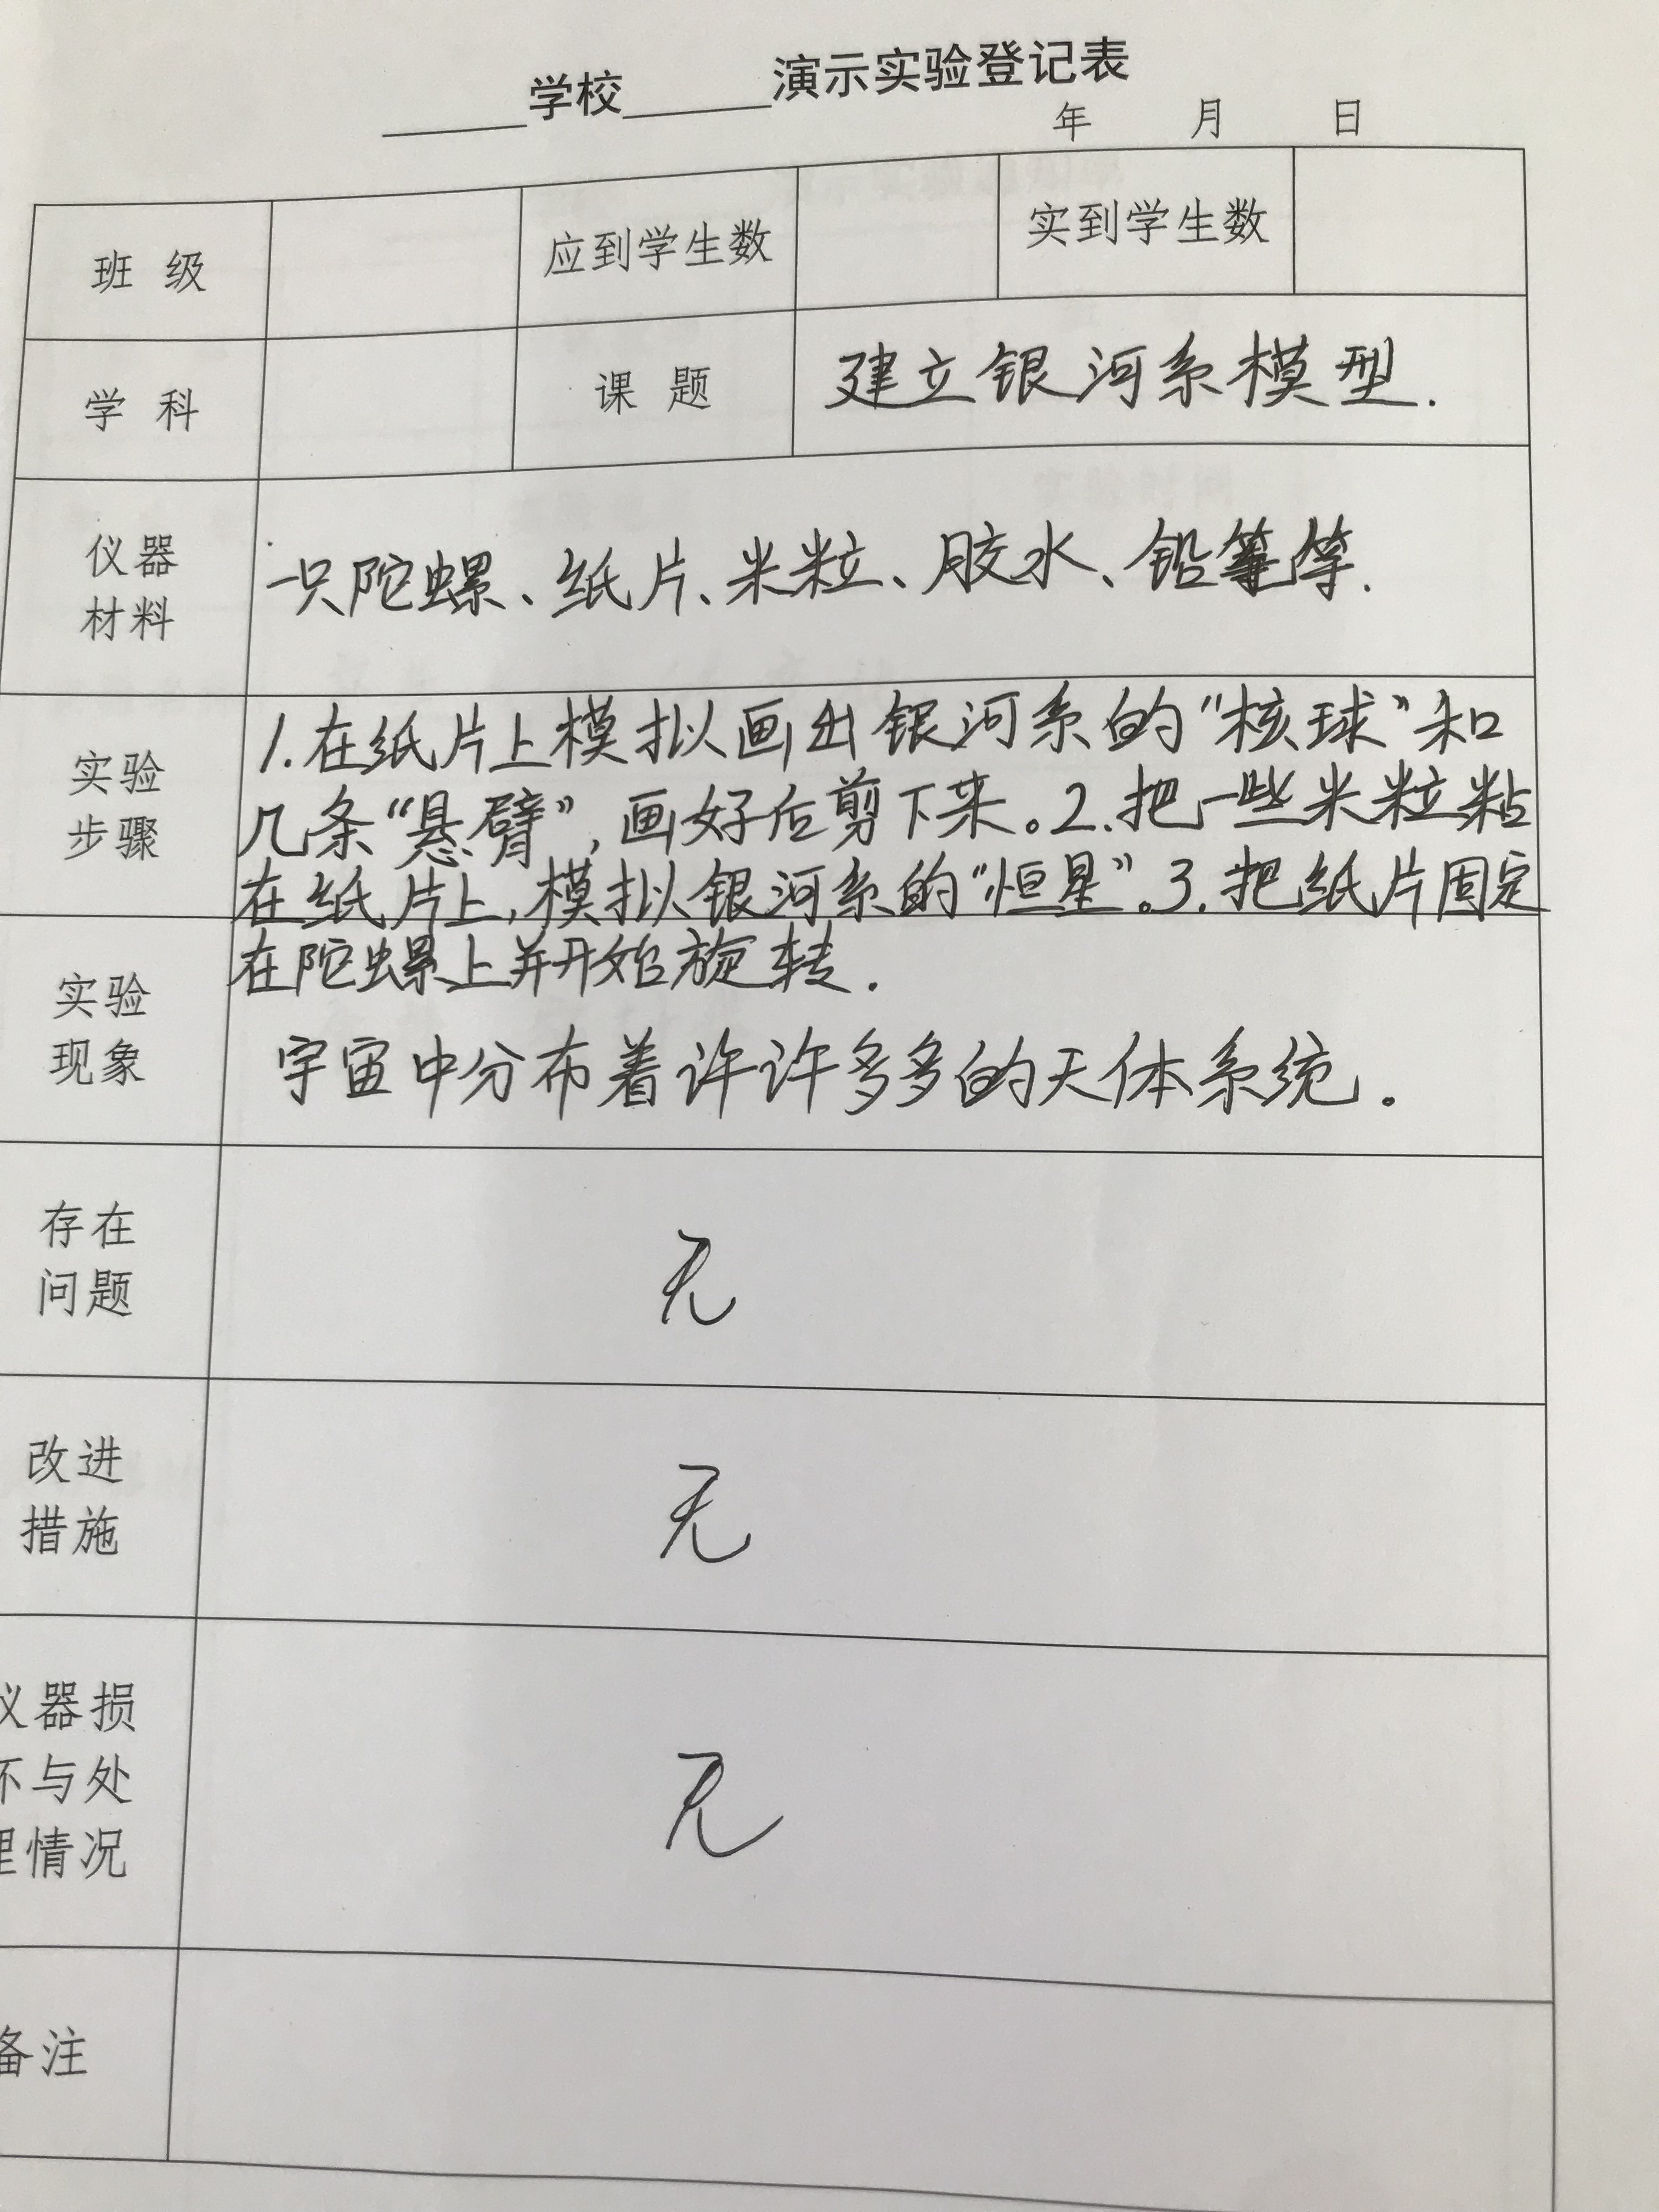 ______学校______演示实验登记表
年 月 日
班 级 应到学生数 实到学生数
学 科 课 题 建立银河系模型.
仪器
材料
一只陀螺、纸片、米粒、胶水、铅笔等.
实验
步骤
1.在纸片上模拟画出银河系的“核球”和
几条“悬臂”,画好后剪下来。2.把一些米粒粘
在纸片上,模拟银河系的“恒星”。3.把纸片固定
在陀螺上并开始旋转.
实验
现象
宇宙中分布着许许多多的天体系统.
存在
问题
无
改进
措施
无
仪器损
坏与处
理情况
无
备注